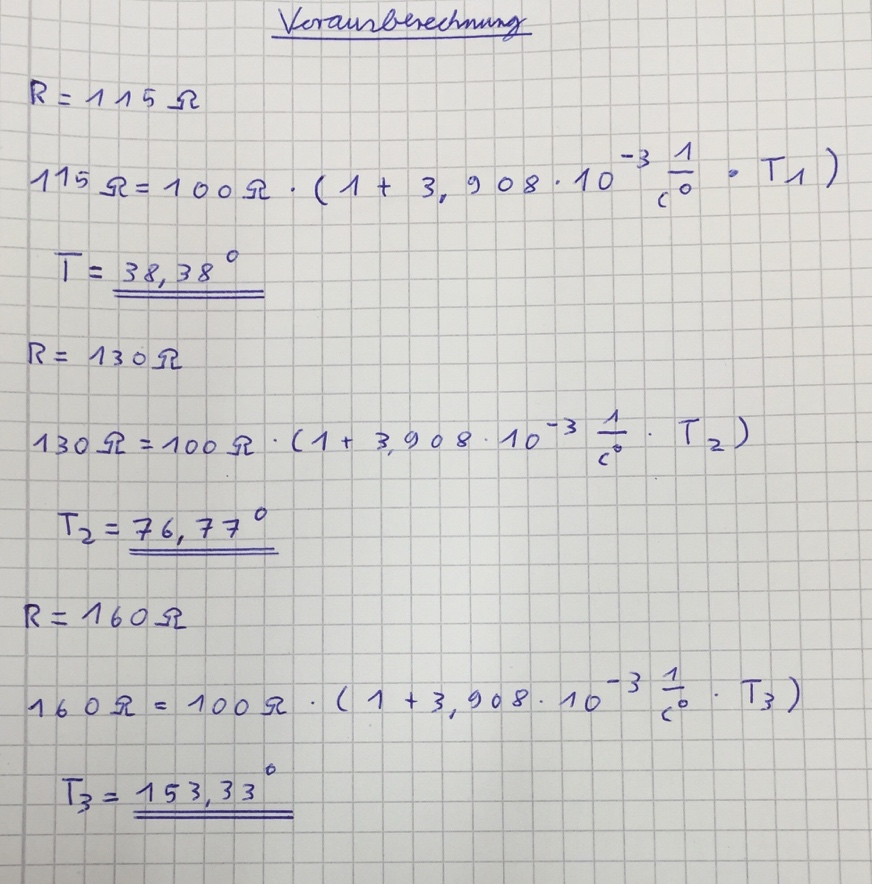 Vorausberechnung
R = 115 Ω
115 Ω = 100 Ω · ( 1 + 3,908 · 10⁻³ 1/C° · T1 )
T = 38,38°
R = 130 Ω
130 Ω = 100 Ω · ( 1 + 3,908 · 10⁻³ 1/C° · T2 )
T2 = 76,77°
R = 160 Ω
160 Ω = 100 Ω · ( 1 + 3,908 · 10⁻³ 1/C° · T3 )
T3 = 153,33°